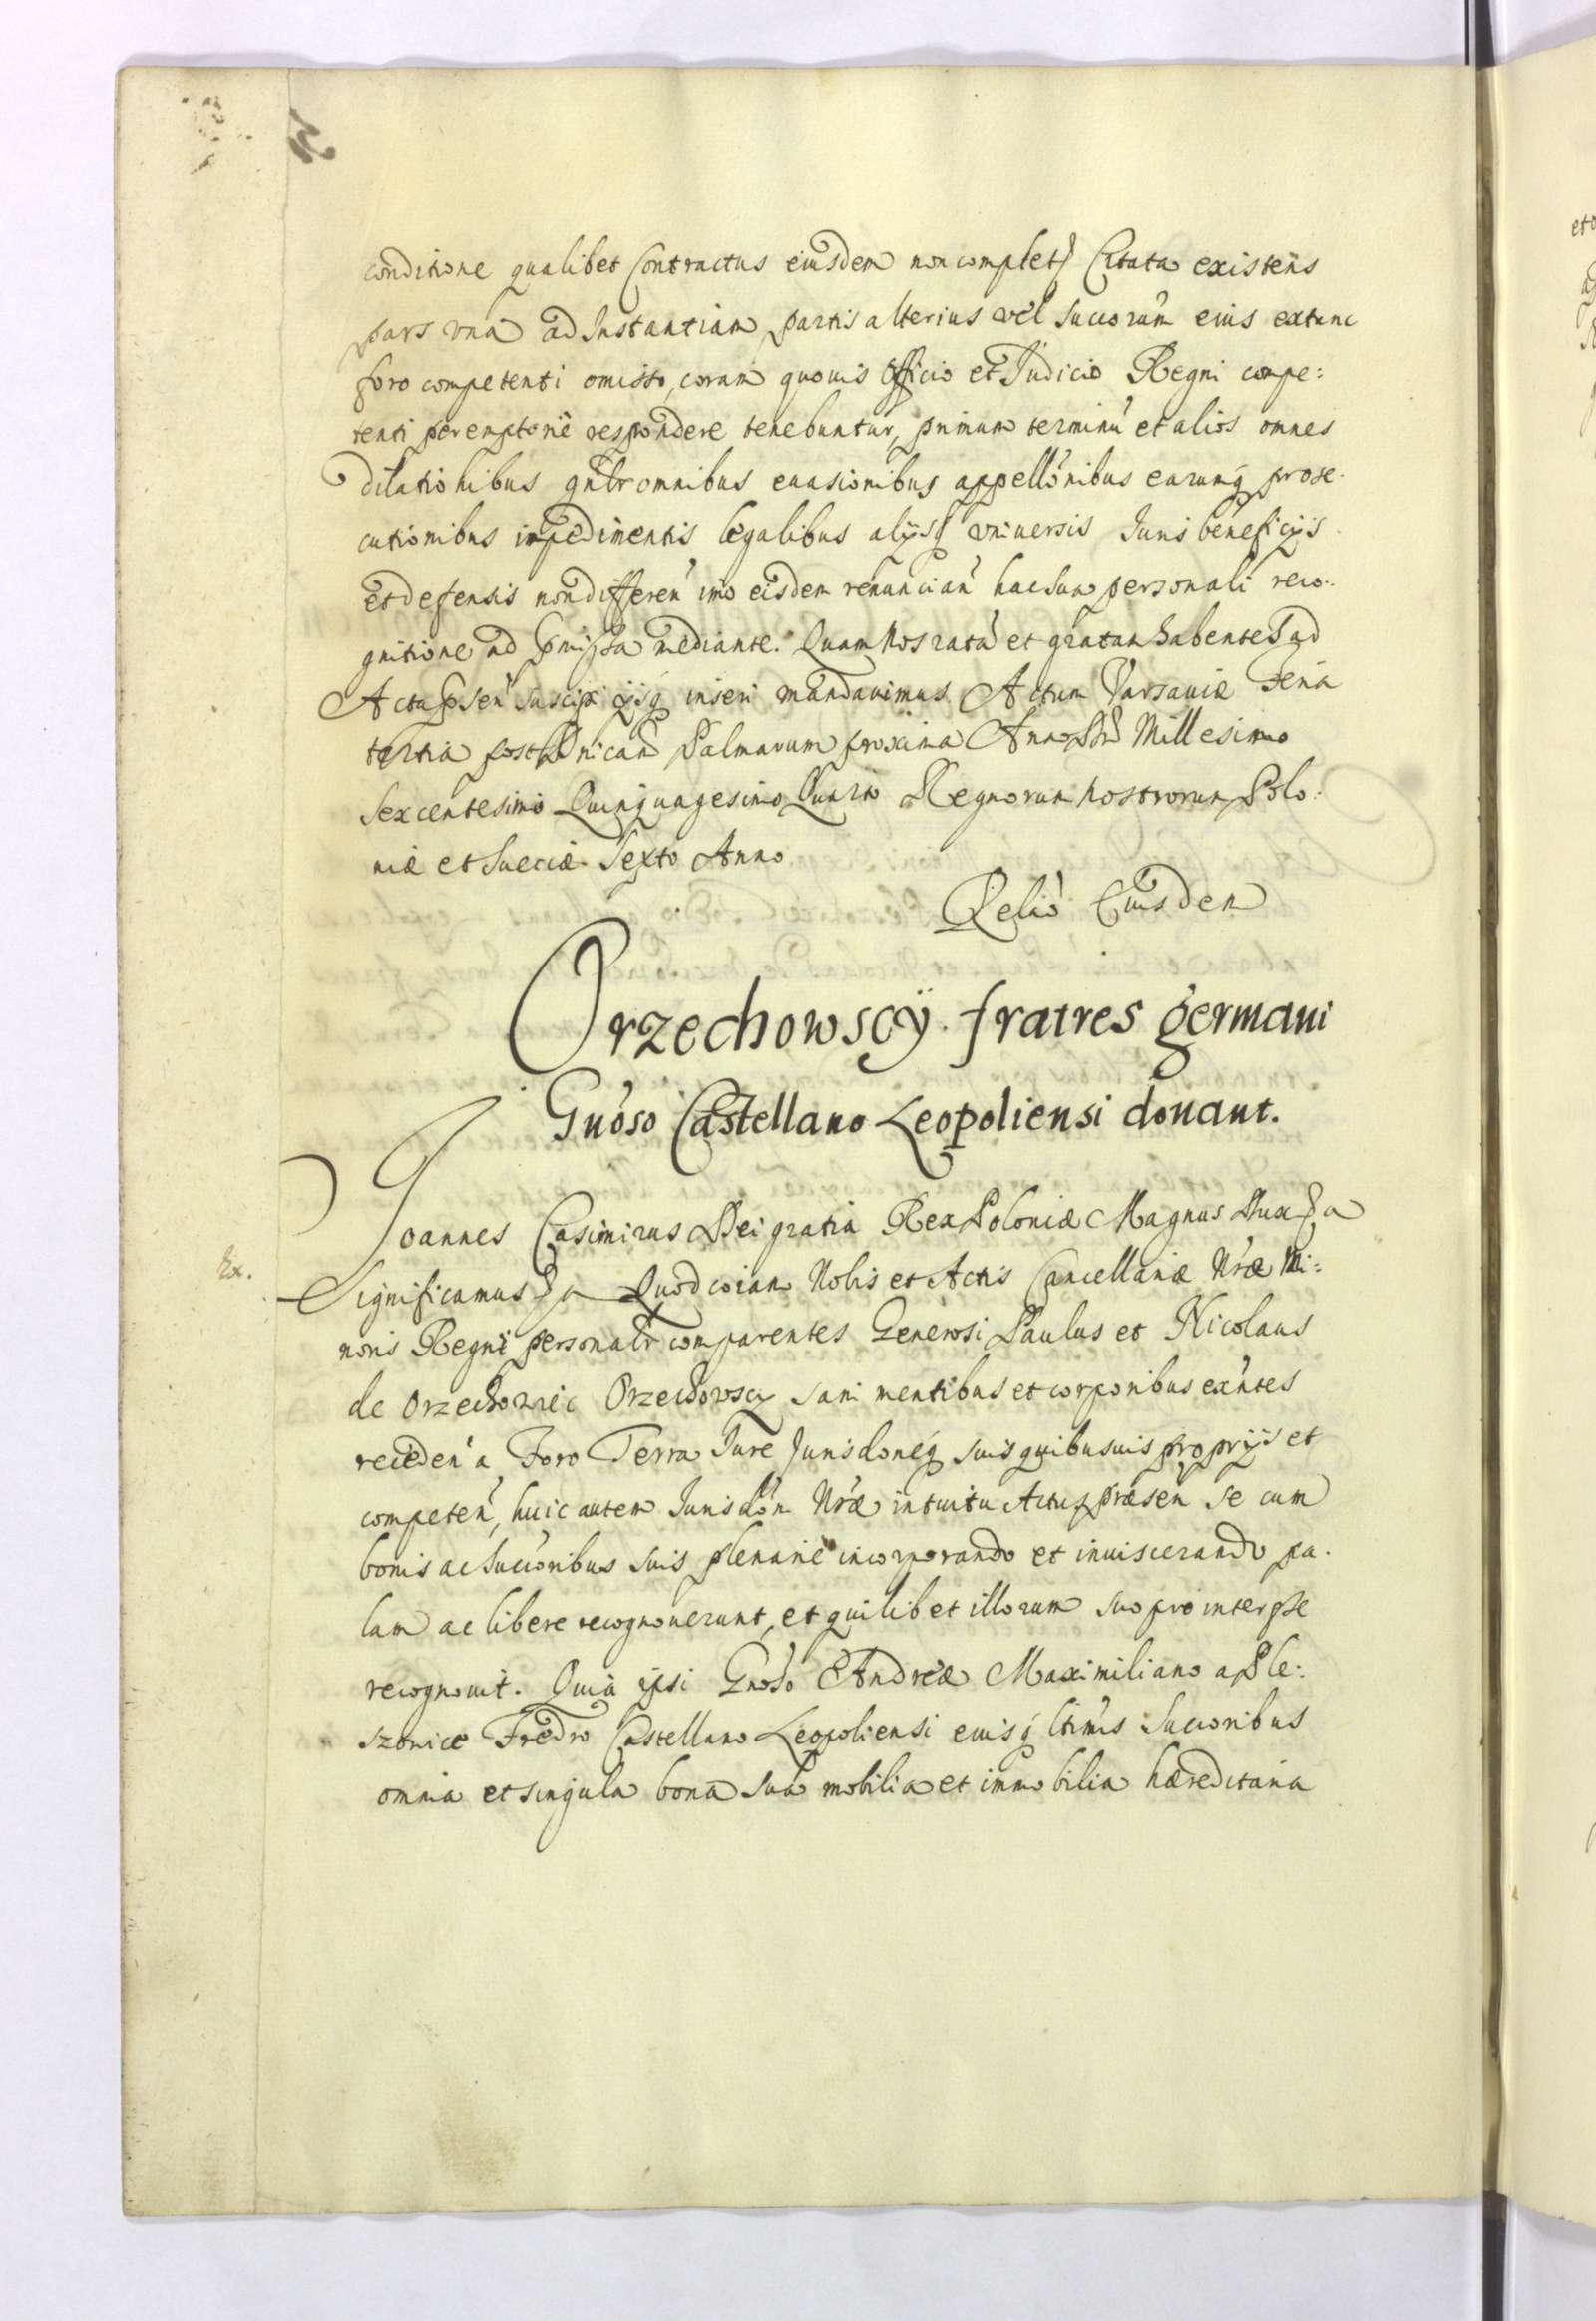 conditione qualibet Contractus eiusdem non complet Citata existens
pars una ad Instantiam partis alterius vel succorum eius extunc
foro competenti omisso, coram quouis Officio et Judicio Regni compe:
tenti peremptorie respondere tenebuntur, primum terminu et alios omnes
dilationibus gnlr omnibus euasionibus appellonibus earumq prose-
cutionibus impedimentis legalibus alijsq vniuersis Iuris beneficijs
et defensis non differen imo eisdem renuncian hac sua personali reco-
gnitione ad pmissa mediante. Quam Nos rata et gratam habentes ad
Acta psen suscipi ijsq inseri mandauimus. Actum Varsauiæ feria
tertia post Dnicam Palmarum proxima Anno Dni Millesimo
Sexcentesimo Quinquagesimo Quarto Regnorum Nostrorum Polo:
niæ et Sueciæ Sexto Anno
Relio Eiusdem
Orzechowscÿ fratres germani
Gnoso Castellano Leopoliensi donant.
Joannes Casimirus Dei gratia Rex Poloniæ Magnus Dux &a
Ex.
Significamus &a Quod coram Nobis et Actis Cancellariæ Nræ Mi:
noris Regni personalr comparentes Generosi Paulus et Nicolaus
de Orzechowiec Orzechowscy sani mentibus et corporibus exntes
receden a Foro Terra Iure Jurisdoneq suis quibusuis proprijs et
competen, huic autem Iurisdon Nræ intuitu Actus præsen se cum
bonis ac succoribus suis plenarie incorporando et inuiscerando pa-
lam ac libere recognouerunt, et quilibet illorum suo pro interesse
recognouit. Quia ipsi Gnoso Andreæ Maximiliano a Ple:
szowice Fredro Castellano Leopoliensi eiusq ltimis succoribus
omnia et singula bona sua mobilia et immobilia hæreditaria